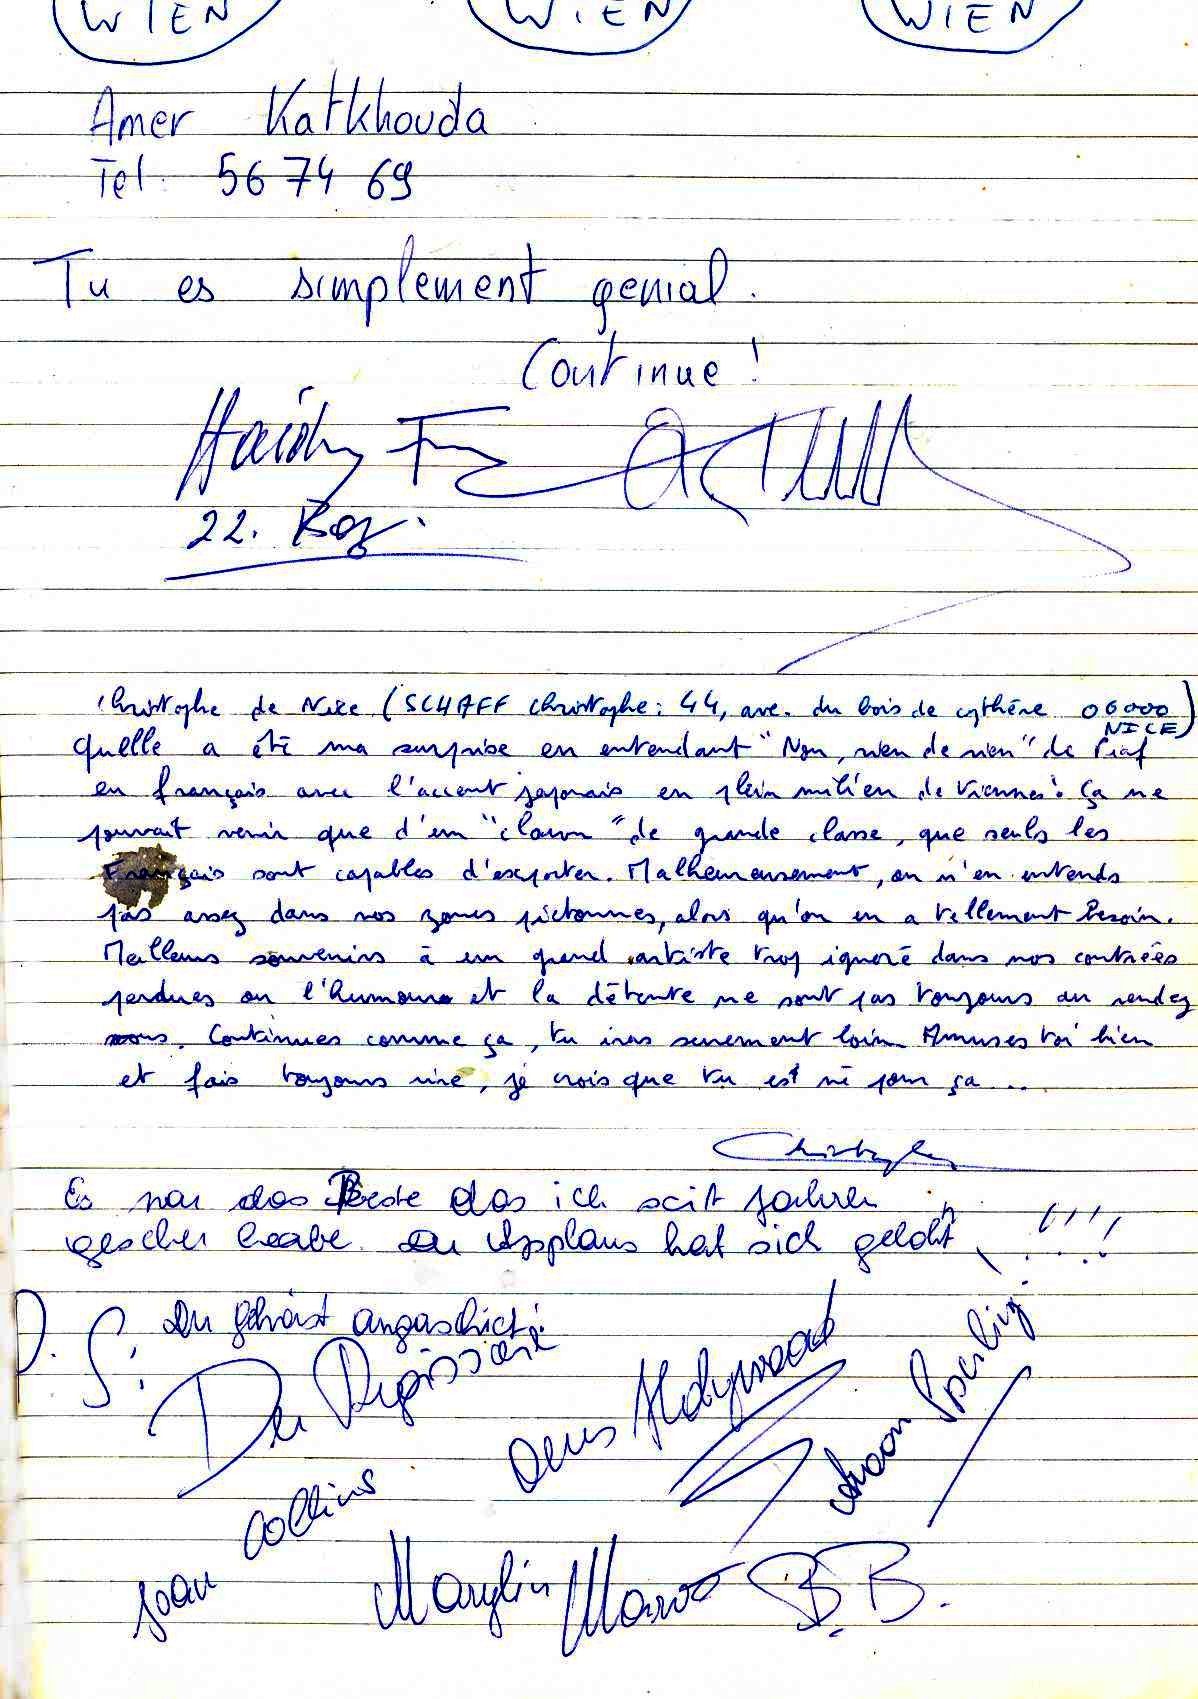 WIEN WIEN WIEN
Amer Katkhouda
Tel. 56 74 69
Tu es simplement genial.
Continue !
22. Bez.
Christophe de Nice (SCHAFF Christophe : 44, ave. du bois de cythère 06000 NICE)
Quelle a été ma surprise en entendant "Non, rien de rien" de Piaf
en français avec l'accent japonais en plein milieu de Vienne ! Ça ne
pouvait venir que d'un "clown" de grande classe, que seuls les
Français sont capables d'exporter. Malheureusement, on n'en entends
pas assez dans nos zones piétonnes, alors qu'on en a tellement besoin.
Meilleurs souvenirs à un grand artiste trop ignoré dans nos contrées
perdues ou l'humour et la détente ne sont pas toujours au rendez
vous. Continues comme ça, tu iras surement loin. Amuses toi bien
et fais toujours rire, je crois que tu est né pour ça ...
Christophe
Es war das Beste das ich seit Jahren
gesehen habe. Der Applaus hat sich gelohnt, !!!!
P.S: Du gehörst angaschiert:
Der Regissaire
Joan Collins
Marylin
B.B.